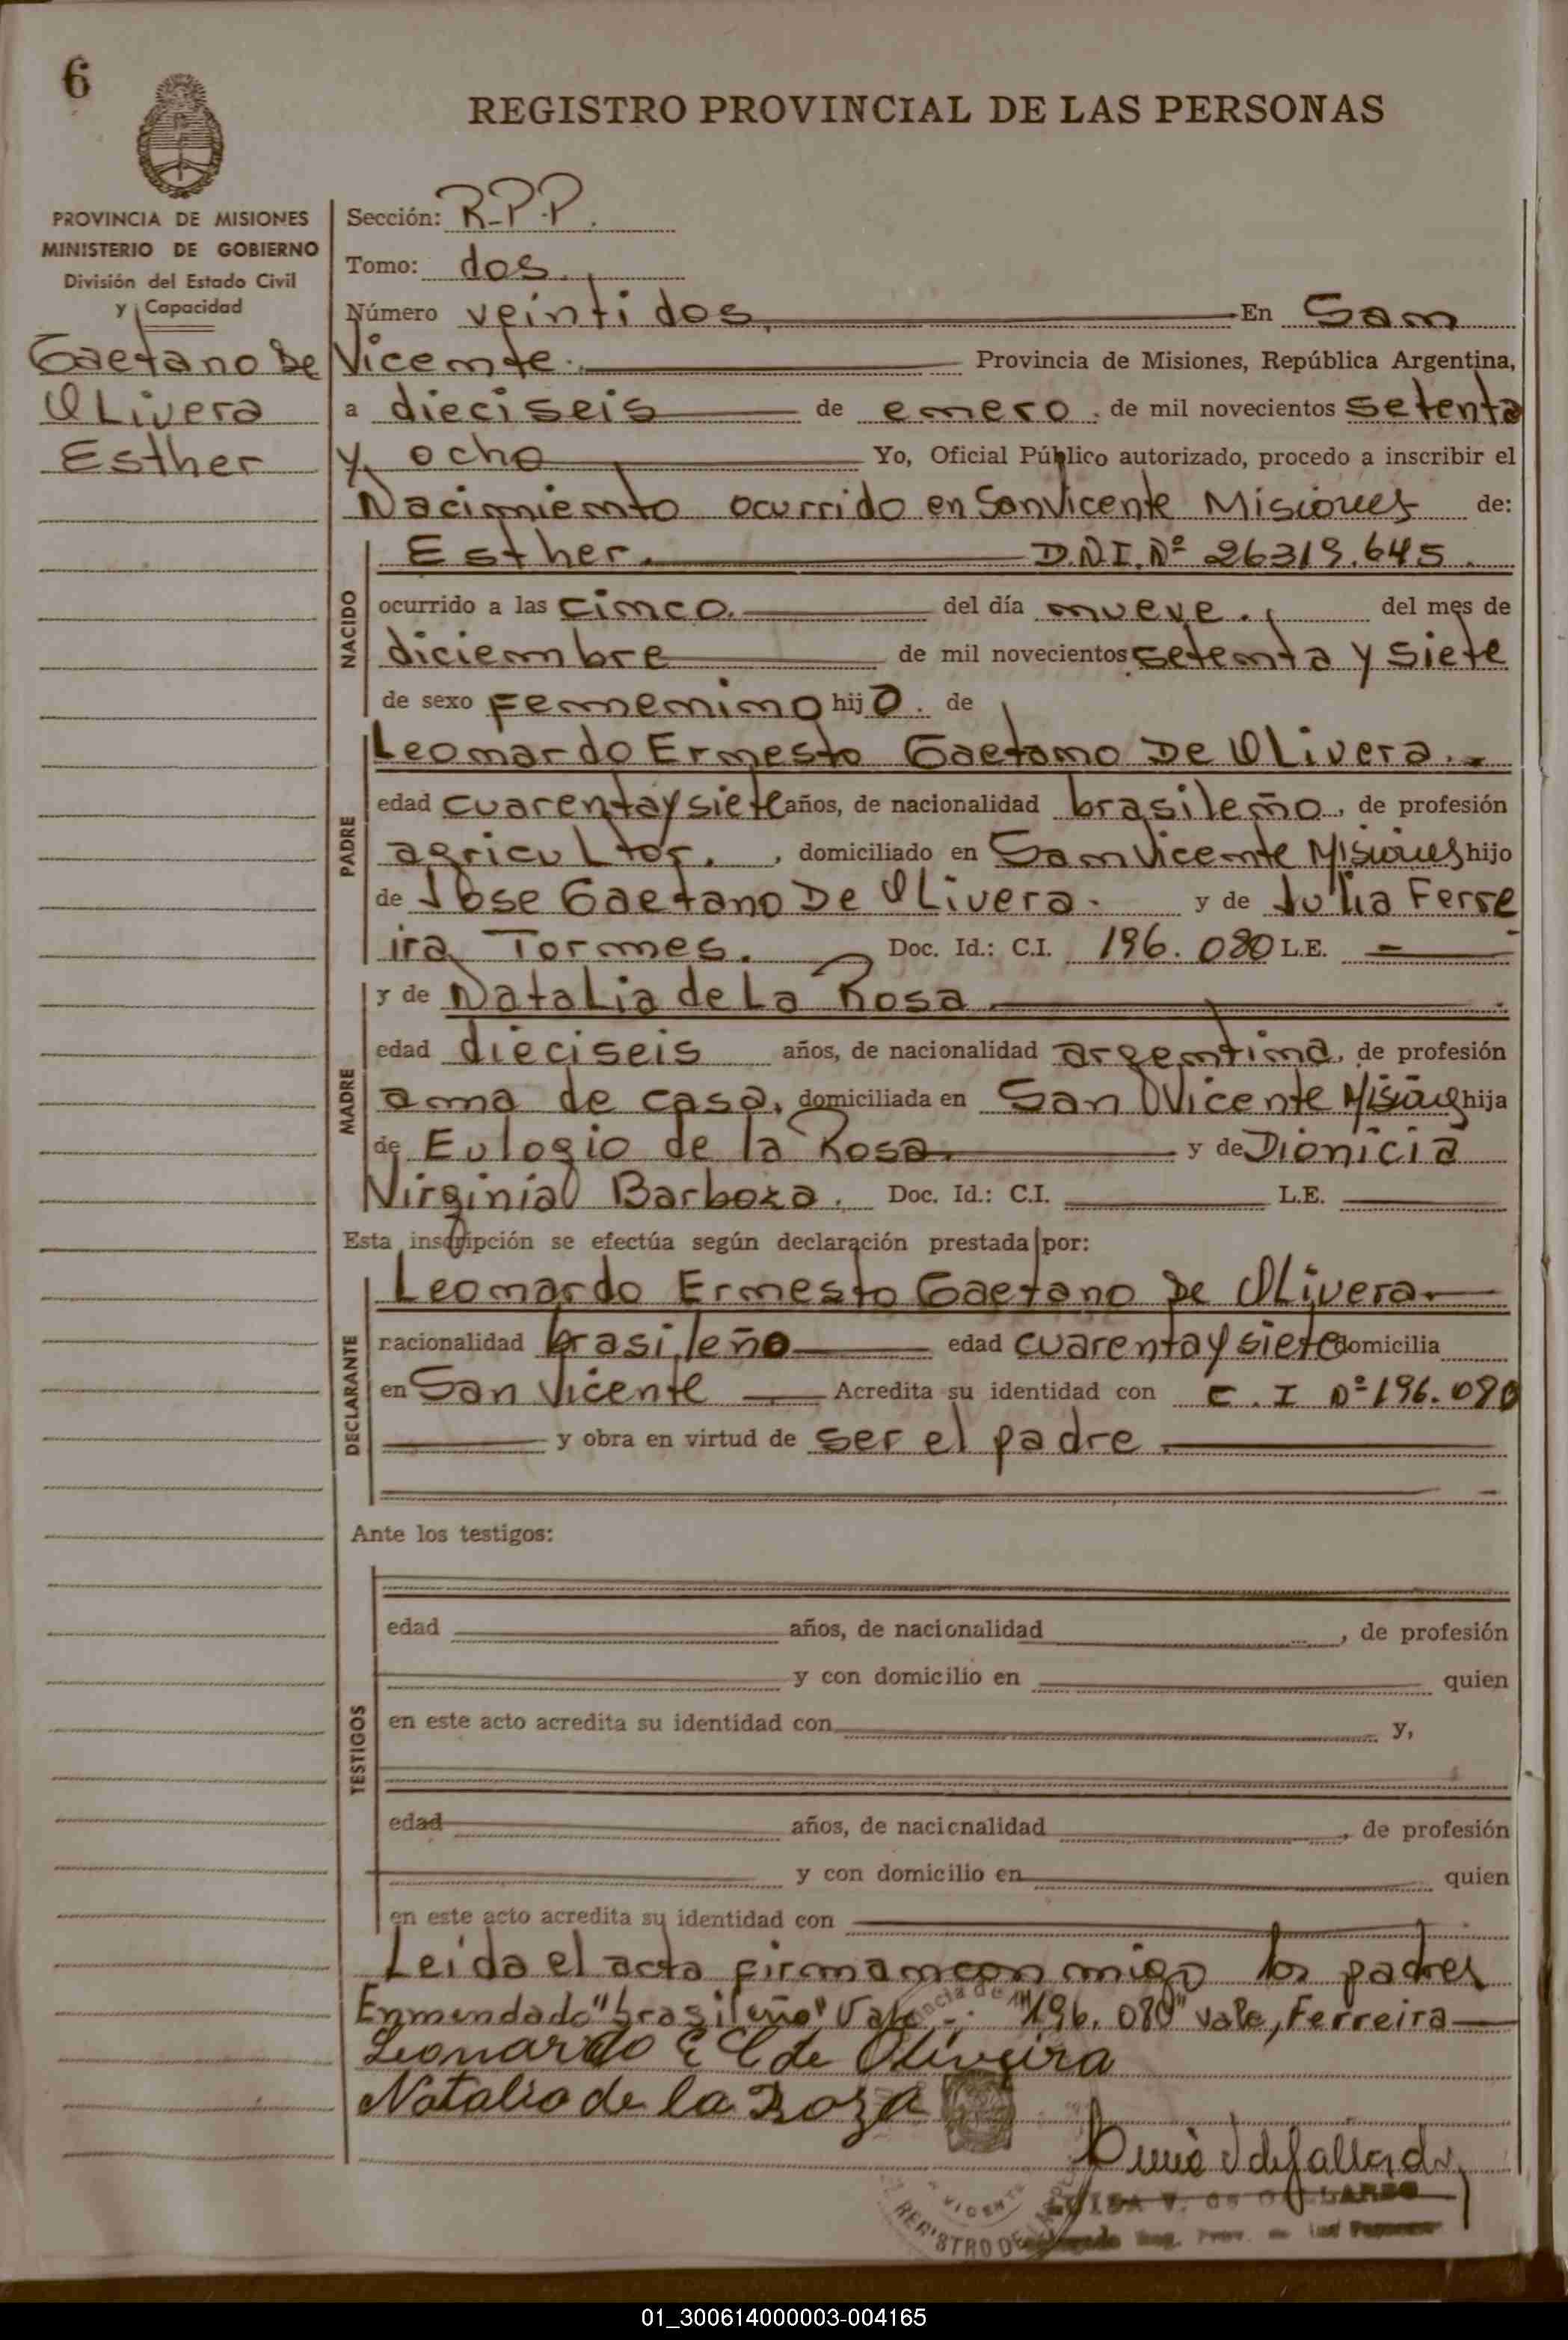 6
REGISTRO PROVINCIAL DE LAS PERSONAS
PROVINCIA DE MISIONES
MINISTERIO DE GOBIERNO
División del Estado Civil
y Capacidad
Gaetano De
Olivera
Esther
Sección: R.P.P.
Tomo: dos.
Número veintidos. En San
Vicente. Provincia de Misiones, República Argentina,
a dieciseis de enero. de mil novecientos setenta
y ocho Yo, Oficial Público autorizado, procedo a inscribir el
Nacimiento ocurrido en San Vicente Misiones de:
Esther. D.N.I. Nº 26319.645.
NACIDO
ocurrido a las cinco. del día nueve. del mes de
diciembre de mil novecientos setenta y siete
de sexo femenino hija. de
PADRE
Leonardo Ernesto Gaetano De Olivera.
edad cuarenta y siete años, de nacionalidad brasileño, de profesión
agricultor, domiciliado en San Vicente Misiones hijo
de Jose Gaetano De Olivera. y de Julia Ferre
ira Tormes. Doc. Id.: C.I. 196.080 L.E.
MADRE
y de Natalia de La Rosa
edad dieciseis años, de nacionalidad argentina, de profesión
ama de casa, domiciliada en San Vicente Misiones hija
de Eulogio de la Rosa. y de Dionicia
Virginia Barboza. Doc. Id.: C.I. L.E.
Esta inscripción se efectúa según declaración prestada por:
DECLARANTE
Leonardo Ernesto Gaetano De Olivera
nacionalidad brasileño edad cuarenta y siete domicilia
en San Vicente Acredita su identidad con C.I Nº 196.080
y obra en virtud de ser el padre.
Ante los testigos:
TESTIGOS
edad años, de nacionalidad, de profesión
y con domicilio en quien
en este acto acredita su identidad con y,
edad años, de nacionalidad, de profesión
y con domicilio en quien
en este acto acredita su identidad con
Leida el acta firman con migo los padres
Enmendado "brasileño" Vale "196.080" vale, Ferreira
Leonardo E C de Oliveira
Natalia de la Roza
VICENTE
REGISTRO DE
LUISA V. de GALLARDO
Reg. Prov. de las Personas
01_300614000003-004165